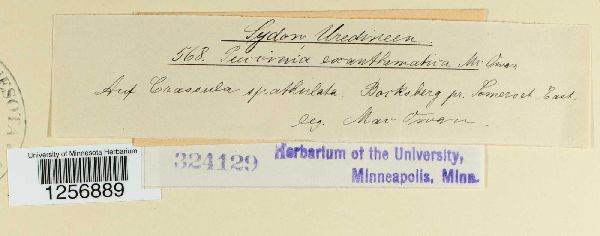 Sydow Uredineen.
568. Puccinia exanthematica Mc Owan
Auf Crassula spathulata. Boschberg pr. Somerset East.
leg. Mac Owan.
ESOTA
University of Minnesota Herbarium
1256889
324129
Herbarium of the University,
Minneapolis, Minn.